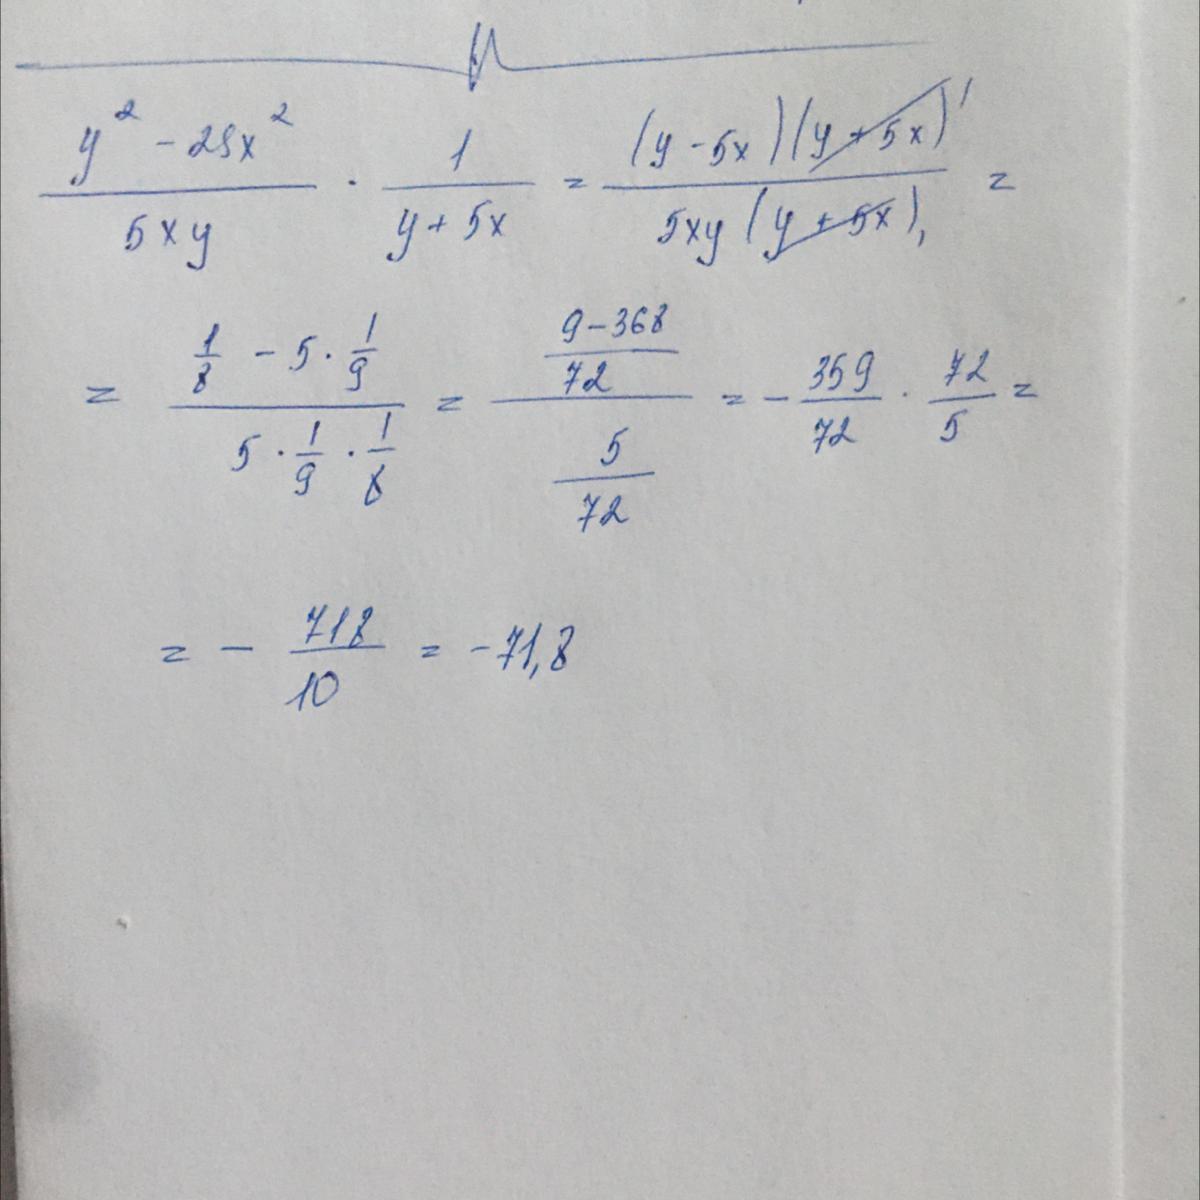 y² - 25x² / 5xy · 1 / y + 5x = (y - 5x)(y + 5x) 1 / 5xy (y + 5x) 1 =
= 1/8 - 5 · 1/9 / 5 · 1/9 · 1/8 = 9 - 368 / 72 / 5 / 72 = - 359/72 · 72/5 =
= - 718/10 = -71,8